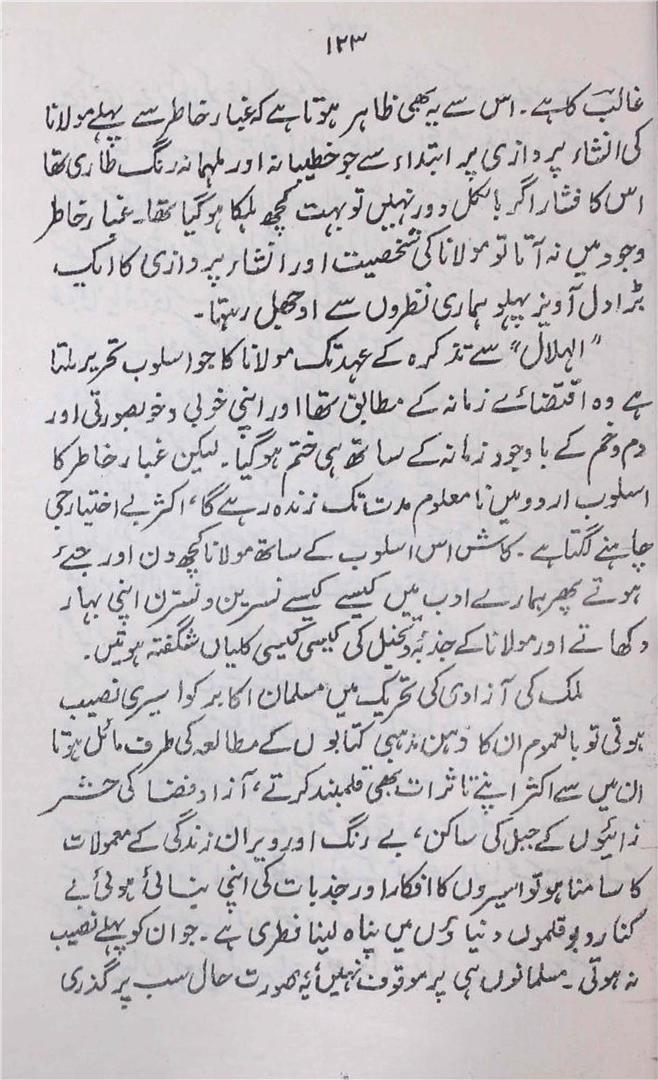 ۱۲۳
غالب کا ہے۔ اس سے یہ بھی ظاہر ہوتا ہے کہ غبار خاطر سے پہلے مولانا
کی انشاء پردازی پر ابتداء سے جو خطیبانہ اور ملہمانہ رنگ طاری تھا
اس کا فشار اگر بالکل دور نہیں تو بہت کچھ ہلکا ہو گیا تھا۔ غبار خاطر
وجود میں نہ آتا تو مولانا کی شخصیت اور انشاء پردازی کا ایک
بڑا دل آویز پہلو ہماری نظروں سے اوجھل رہتا۔
"الہلال" سے تذکرہ کے عہد تک مولانا کا جو اسلوب تحریر ملتا
ہے وہ اقتضائے زمانہ کے مطابق تھا اور اپنی خوبی و خوبصورتی اور
دم و خم کے باوجود زمانہ کے ساتھ ہی ختم ہو گیا۔ لیکن غبار خاطر کا
اسلوب اردو میں نا معلوم مدت تک زندہ رہے گا، اکثر بے اختیار جی
چاہنے لگتا ہے۔ کاش اس اسلوب کے ساتھ مولانا کچھ دن اور جئے
ہوتے پھر ہمارے ادب میں کیسے کیسے نسرین و نسترن اپنی بہار
دکھاتے اور مولانا کے جذبۂ و تخیل کی کیسی کیسی کلیاں شگفتہ ہوتیں۔
ملک کی آزادی کی تحریک میں مسلمان اکابر کو اسیری نصیب
ہوتی تو بالعموم ان کا ذہن مذہبی کتابوں کے مطالعہ کی طرف مائل ہوتا
ان میں سے اکثر اپنے تاثرات بھی قلمبند کرتے، آزاد فضا کی حشر
زائیوں کے جیل کی ساکن، بے رنگ اور ویران زندگی کے معمولات
کا سامنا ہو تو اسیروں کا افکار اور جذبات کی اپنی بنائی ہوئی بے
کنار و بوقلموں دنیاؤں میں پناہ لینا فطری ہے۔ جو ان کو پہلے نصیب
نہ ہوتی۔ مسلمانوں ہی پر موقوف نہیں یہ صورت حال سب پر گذری